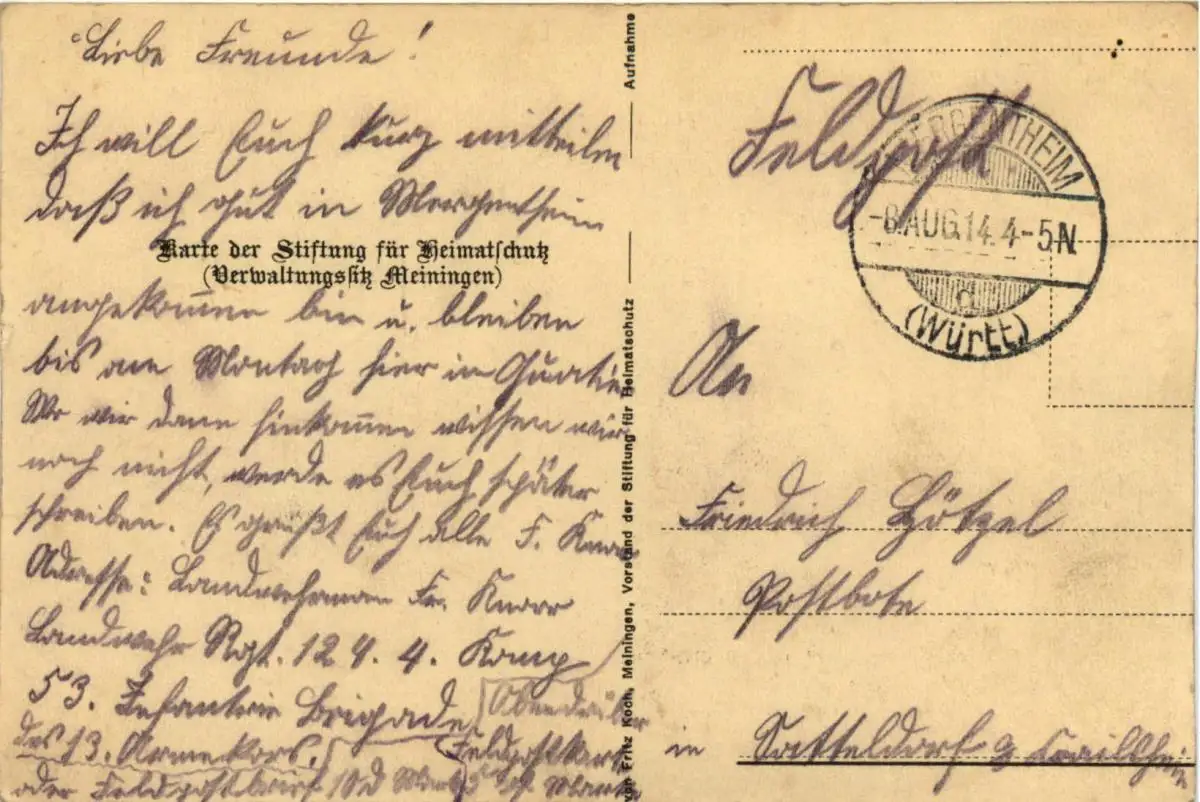 Liebe Freunde!
Ich will Euch kurz mitteilen
daß ich gut in Mergentheim
Karte der Stiftung für Heimatschutz
(Verwaltungssitz Meiningen)
angekom̅en bin u. bleiben
bis am Montag hier in Quatier
Wo wir dann hinkom̅en wissen wir
noch nicht, werde es Euch später
schreiben. Es grüßt Euch alle F. Knorr
Adresse: Landwehrman Fr. Knorr
Landwehr Rgt. 124. 4. Komp
53. Infanterie Brigade
des 13. Armekors.
Obendrüber
Feldpostkarte
oder Feldpostbrief
Aufnahme
von Fritz Koch, Meiningen, Vorstand der Stiftung für Heimatschutz
Feldpost
MERGENTHEIM
-8.AUG.14.4-5N.
d
(Württ)
An
Friedrich Hötzel
Postbote
in Satteldorf